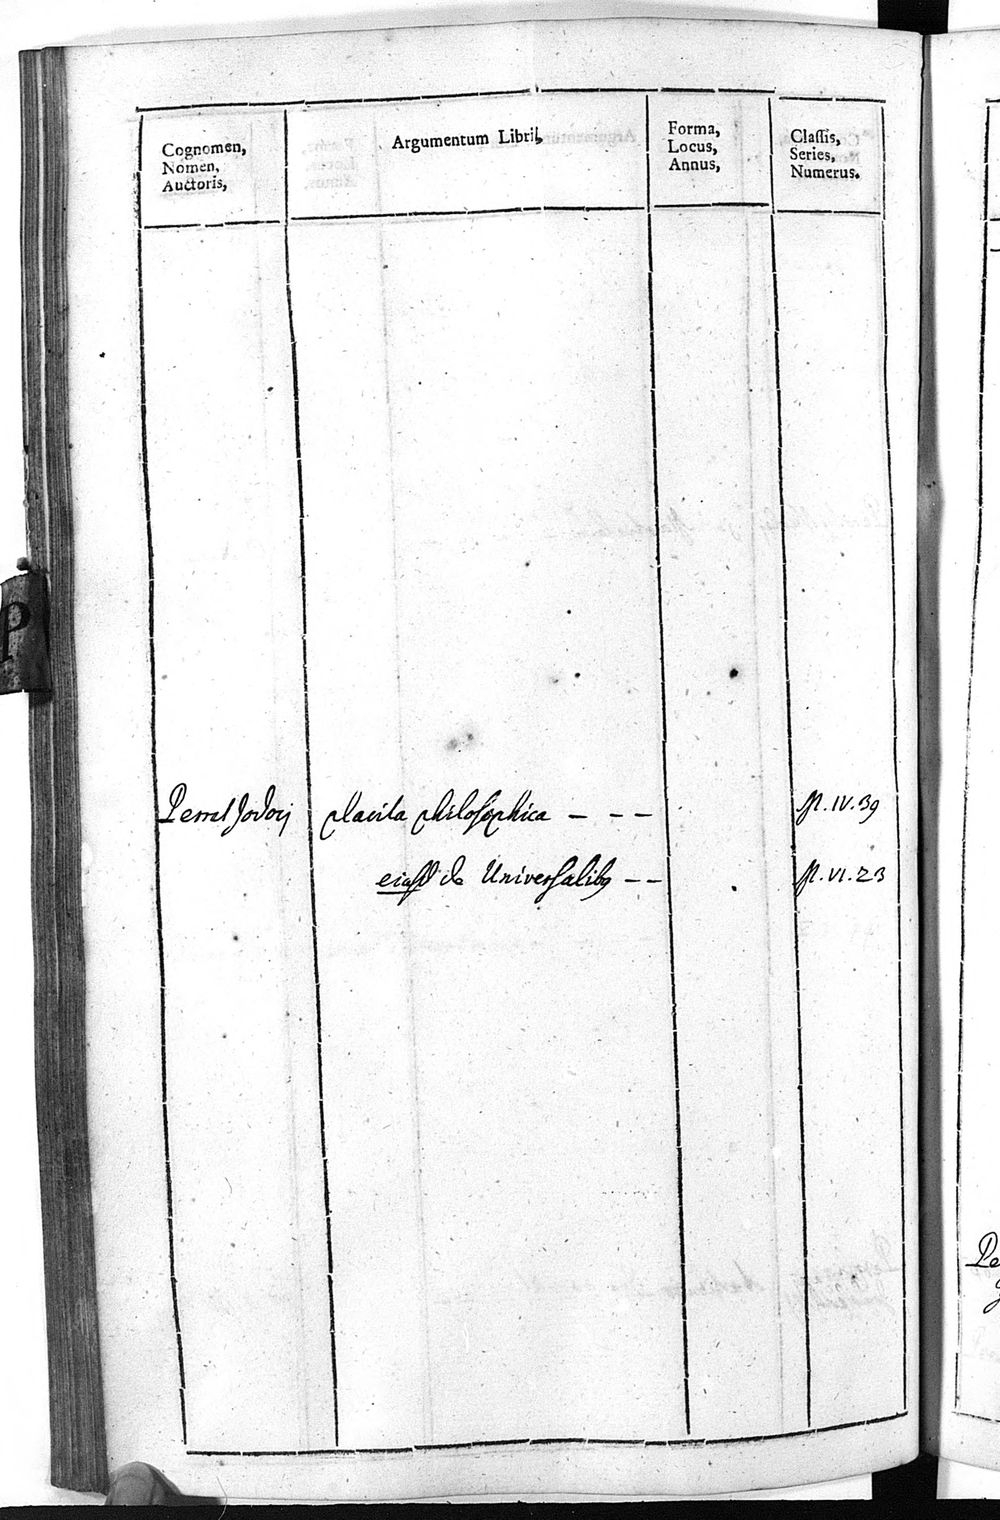 Cognomen,
Nomen,
Auctoris,
Argumentum Libri,
Forma,
Locus,
Annus,
Classis,
Series,
Numerus.
P
Perret Jodoci placita philosophica - - - IV.39
eiusd de Universalibq - - VI.23
Pe